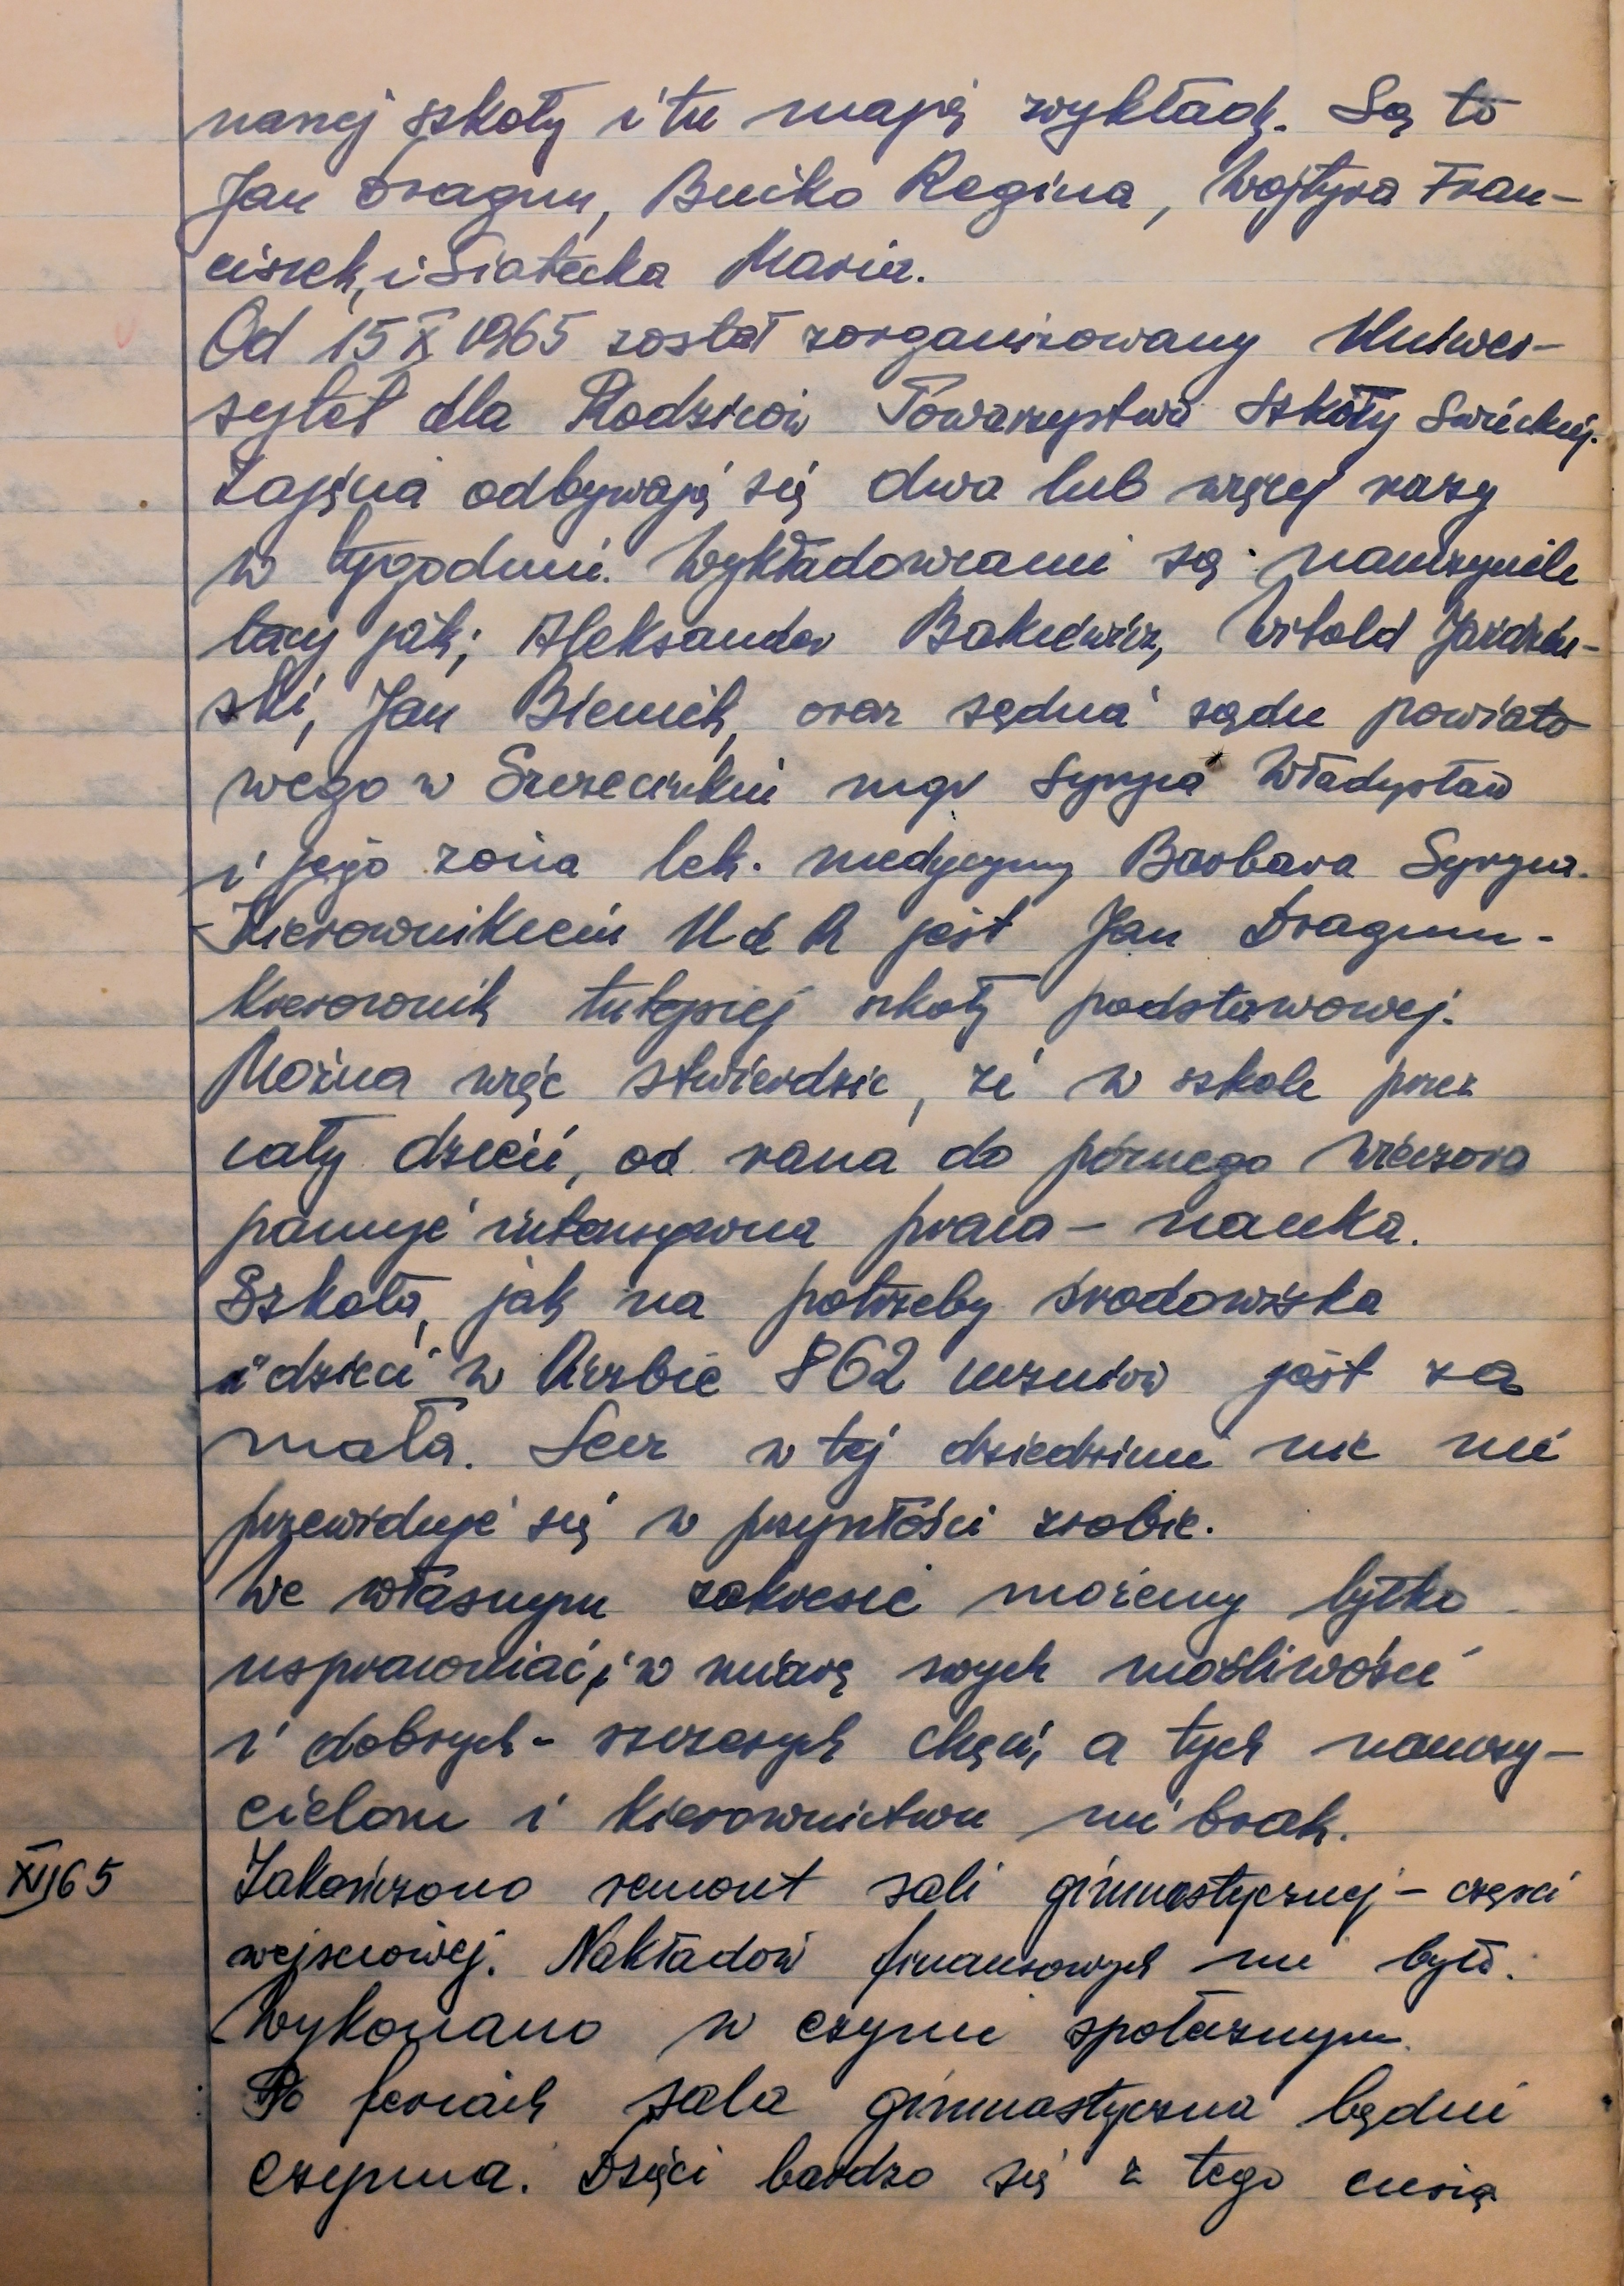 naszej szkoły i tu mają wykłady. Są to
Jan Dragun, Bućko Regina, Wojtyra Fran-
ciszek, i Siatecka Maria.
Od 15 X 1965 został zorganizowany Uniwer-
sytet dla Rodziców Towarzystwa Szkoły Świeckiej.
Zajęcia odbywają się dwa lub więcej razy
w tygodniu. Wykładowcami są nauczyciele
tacy jak; Aleksander Bakiewicz, Witold Jaździń-
ski, Jan Biernik, oraz sędzia sądu powiato
wego w Szczecinku mgr Syryca Władysław
i jego żona lek. medycyny Barbara Syryca.
Kierownikiem U d R jest Jan Dragun -
kierownik tutejszej szkoły podstawowej.
Można więc stwierdzić, że w szkole przez
cały dzień, od rana do późnego wieczora
panuje intensywna praca - nauka.
Szkoła, jak na potrzeby środowiska
i dzieci w liczbie 862 uczniów jest za
mała. Lecz w tej dziedzinie nic nie
przewiduje się w przyszłości zrobić.
We własnym zakresie możemy tylko
usprawniać, i w miarę swych możliwości
i dobrych - szczerych chęci, a tych nauczy-
cielom i kierownictwu nie brak.
XII 65
Zakończono remont sali gimnastycznej - części
wejściowej. Nakładów finansowych nie było.
Wykonano w czynie społecznym.
Po feriach sala gimnastyczna będzie
czynna. Dzieci bardzo się z tego cieszą